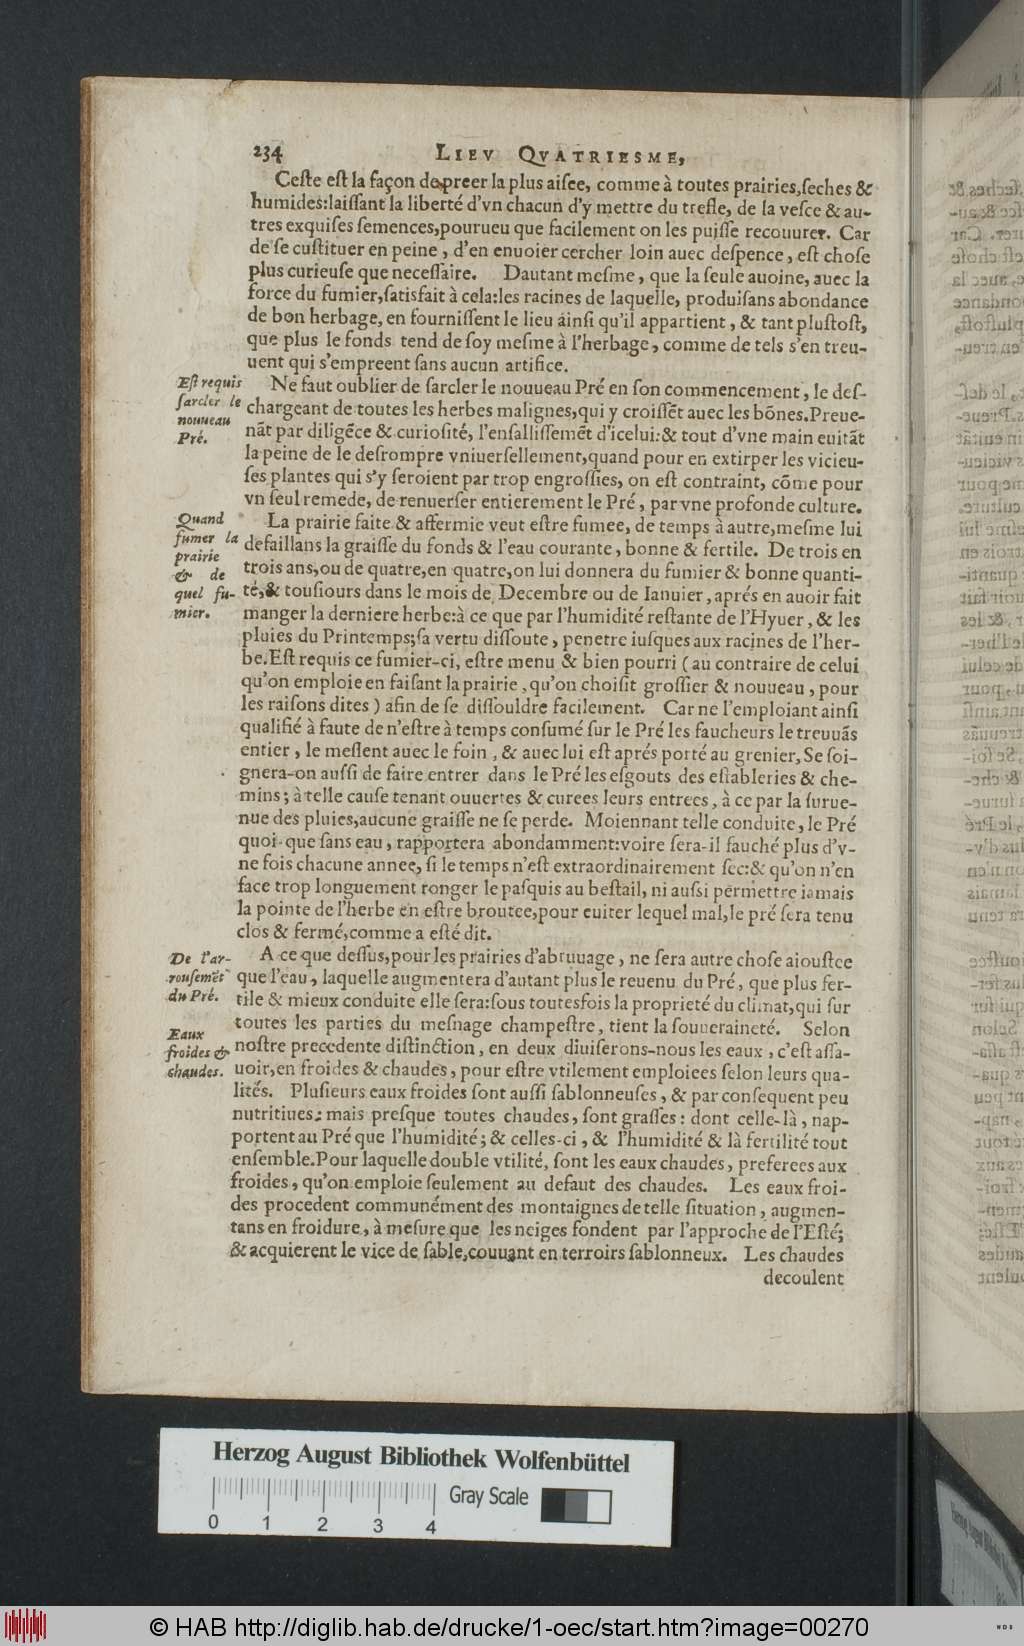 234 LIEV QVATRIESME,
Ceſte eſt la façon d'apreer la plus aiſee, comme à toutes prairies, ſeches &
humides: laiſſant la liberté d'vn chacun d'y mettre du trefle, de la veſce & au-
tres exquiſes ſemences, pourueu que facilement on les puiſſe recouurer. Car
de ſe cuſtituer en peine, d'en enuoier cercher loin auec deſpence, eſt choſe
plus curieuſe que neceſſaire. Dautant meſme, que la ſeule auoine, auec la
force du fumier, ſatisfait à cela: les racines de laquelle, produiſans abondance
de bon herbage, en fourniſſent le lieu ainſi qu'il appartient, & tant pluſtoſt,
que plus le fonds tend de ſoy meſme à l'herbage, comme de tels s'en treu-
uent qui s'empreent ſans aucun artifice.
Eſt requis
ſarcler le
nouueau
Pré.
Ne faut oublier de ſarcler le nouueau Pré en ſon commencement, le deſ-
chargeant de toutes les herbes malignes, qui y croiſſẽt auec les bõnes. Preue-
nãt par diligẽce & curioſité, l'enſalliſſemẽt d'icelui: & tout d'vne main euitãt
la peine de le deſrompre vniuerſellement, quand pour en extirper les vicieu-
ſes plantes qui s'y ſeroient par trop engroſſies, on eſt contraint, cõme pour
vn ſeul remede, de renuerſer entierement le Pré, par vne profonde culture.
Quand
fumer la
prairie
& de
quel fu-
mier.
La prairie faite & affermie veut eſtre fumee, de temps à autre, meſme lui
defaillans la graiſſe du fonds & l'eau courante, bonne & fertile. De trois en
trois ans, ou de quatre, en quatre, on lui donnera du fumier & bonne quanti-
té, & touſiours dans le mois de Decembre ou de Ianuier, aprés en auoir fait
manger la derniere herbe: à ce que par l'humidité reſtante de l'Hyuer, & les
pluies du Printemps; ſa vertu diſſoute, penetre iuſques aux racines de l'her-
be. Eſt requis ce fumier-ci, eſtre menu & bien pourri (au contraire de celui
qu'on emploie en faiſant la prairie, qu'on choiſit groſſier & nouueau, pour
les raiſons dites) afin de ſe diſſouldre facilement. Car ne l'emploiant ainſi
qualifié à faute de n'eſtre à temps conſumé ſur le Pré les faucheurs le treuuãs
entier, le meſlent auec le foin, & auec lui eſt aprés porté au grenier, Se ſoi-
gnera-on auſſi de faire entrer dans le Pré les eſgouts des eſtableries & che-
mins; à telle cauſe tenant ouuertes & curees leurs entrees, à ce par la ſurue-
nue des pluies, aucune graiſſe ne ſe perde. Moiennant telle conduite, le Pré
quoi-que ſans eau, rapportera abondamment: voire ſera-il fauché plus d'v-
ne fois chacune annee, ſi le temps n'eſt extraordinairement ſec: & qu'on n'en
face trop longuement ronger le paſquis au beſtail, ni auſſi permettre iamais
la pointe de l'herbe en eſtre broutee, pour euiter lequel mal, le pré ſera tenu
clos & fermé, comme a eſté dit.
De l'ar-
rouſemẽt
du Pré.
A ce que deſſus, pour les prairies d'abruuage, ne ſera autre choſe aiouſtee
que l'eau, laquelle augmentera d'autant plus le reuenu du Pré, que plus fer-
tile & mieux conduite elle ſera: ſous toutesfois la proprieté du climat, qui ſur
toutes les parties du meſnage champeſtre, tient la ſouueraineté. Selon
Eaux
froides &
chaudes.
noſtre precedente diſtinction, en deux diuiſerons-nous les eaux, c'eſt aſſa-
uoir, en froides & chaudes, pour eſtre vtilement emploiees ſelon leurs qua-
lités. Pluſieurs eaux froides ſont auſſi ſablonneuſes, & par conſequent peu
nutritiues: mais preſque toutes chaudes, ſont graſſes: dont celle-là, nap-
portent au Pré que l'humidité; & celles-ci, & l'humidité & là fertilité tout
enſemble. Pour laquelle double vtilité, ſont les eaux chaudes, preferees aux
froides, qu'on emploie ſeulement au defaut des chaudes. Les eaux froi-
des procedent communément des montaignes de telle ſituation, augmen-
tans en froidure, à meſure que les neiges fondent par l'approche de l'Eſté;
& acquierent le vice de ſable, couuant en terroirs ſablonneux. Les chaudes
decoulent
Herzog August Bibliothek Wolfenbüttel
Gray Scale
0 1 2 3 4
© HAB http://diglib.hab.de/drucke/1-oec/start.htm?image=00270